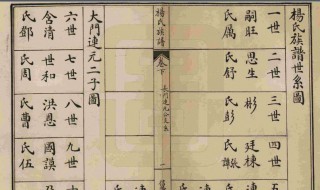 楊氏族譜世系圖
一世 二世 三世 四世 五
嗣旺 思生 彬 廷棟 連
氏厲 氏舒 氏彭 氏譚張 氏
楊氏族譜 卷下 一
大門連元二子圖
六世 七世 八世 九世
含清 世和 洪恩 國謨
氏鄧 氏周 氏曹 氏伍